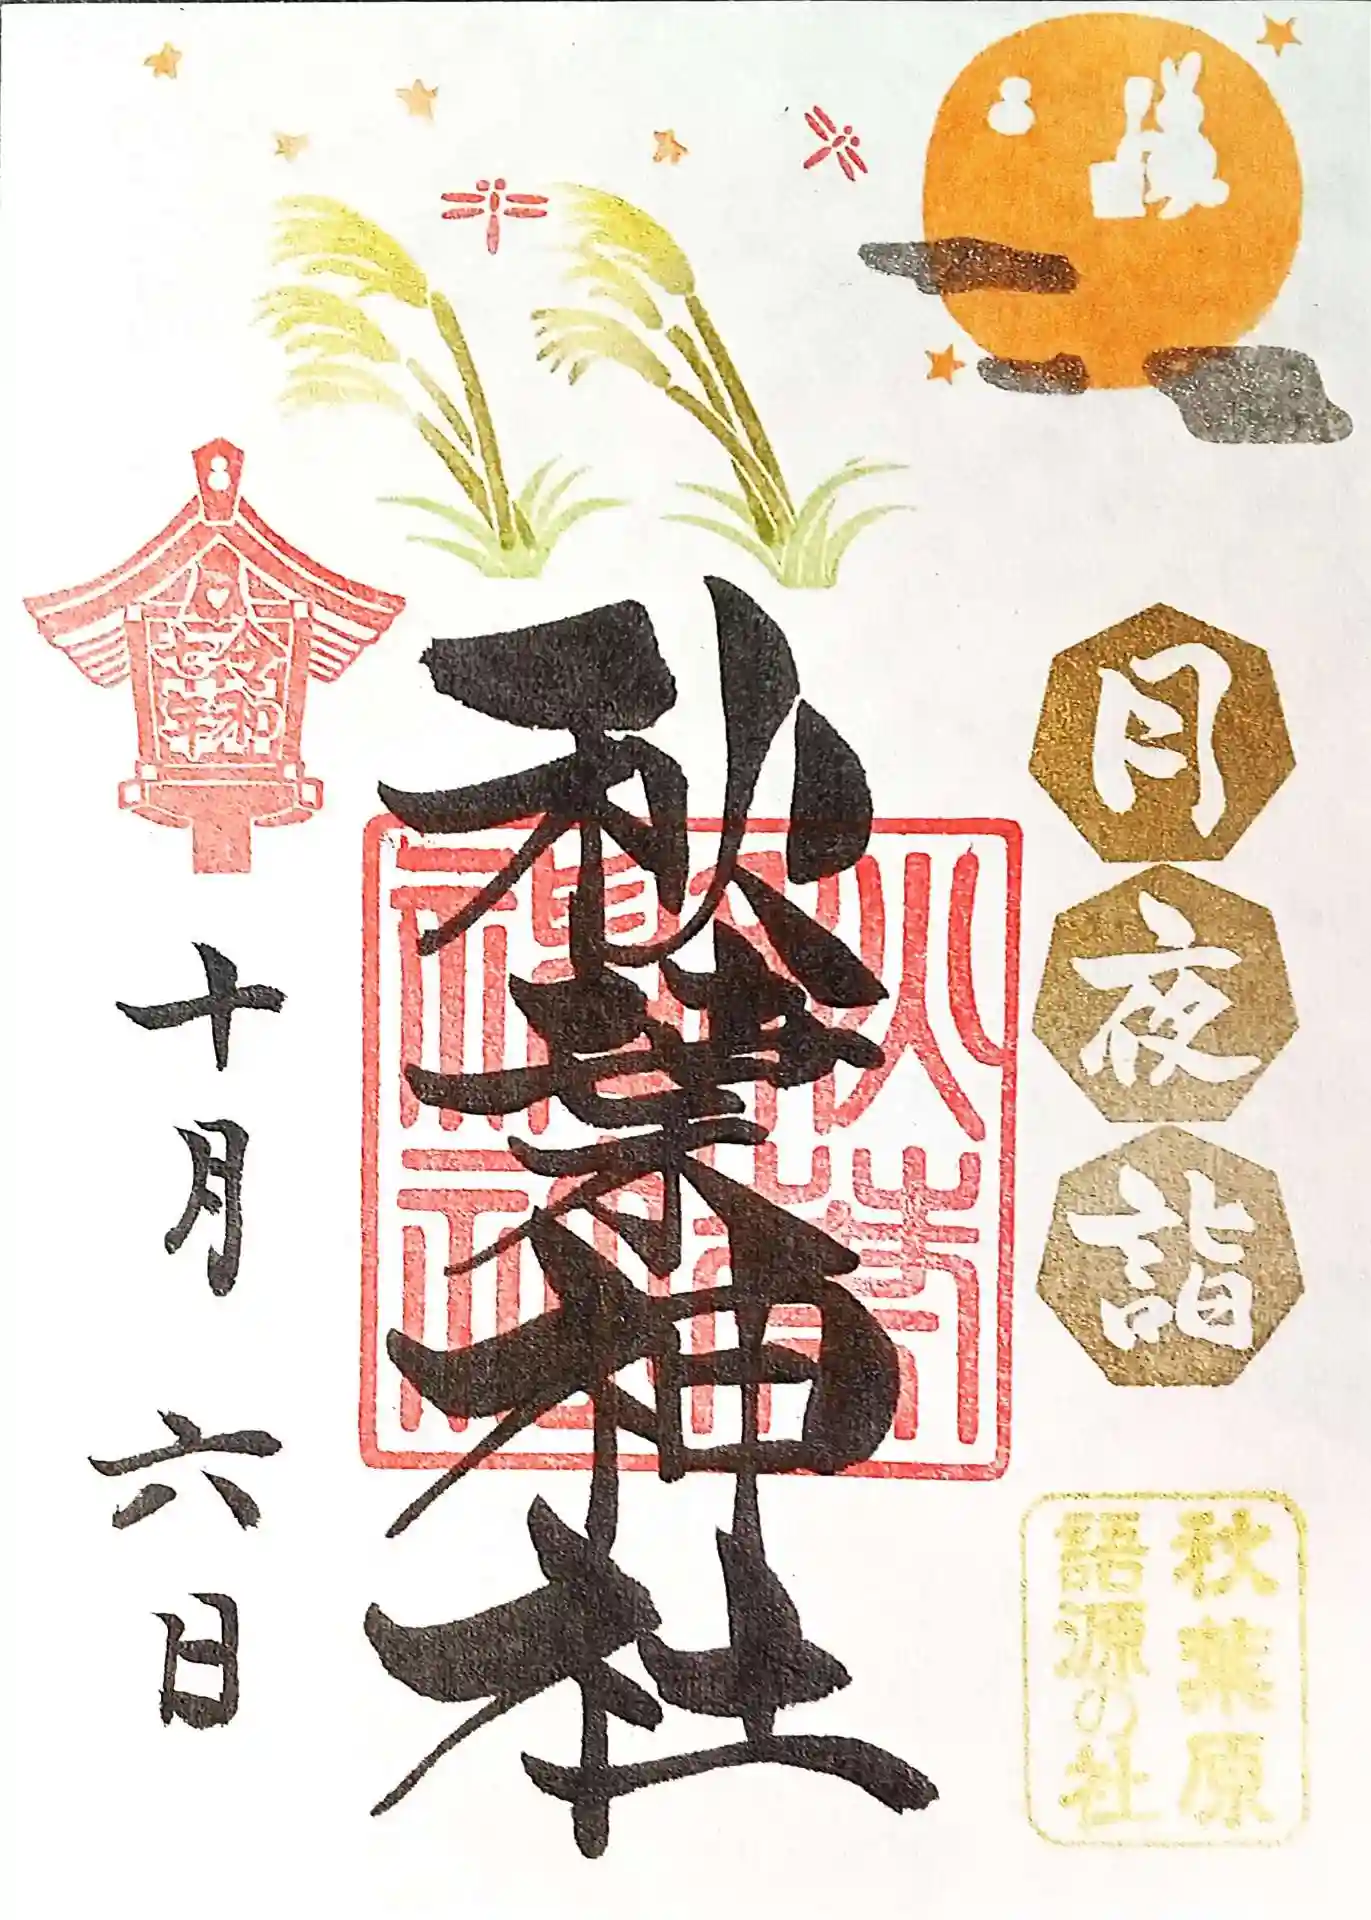 月夜詣
秋葉原
語源の社
秋葉神社
秋葉神社
令和
七年
十月六日